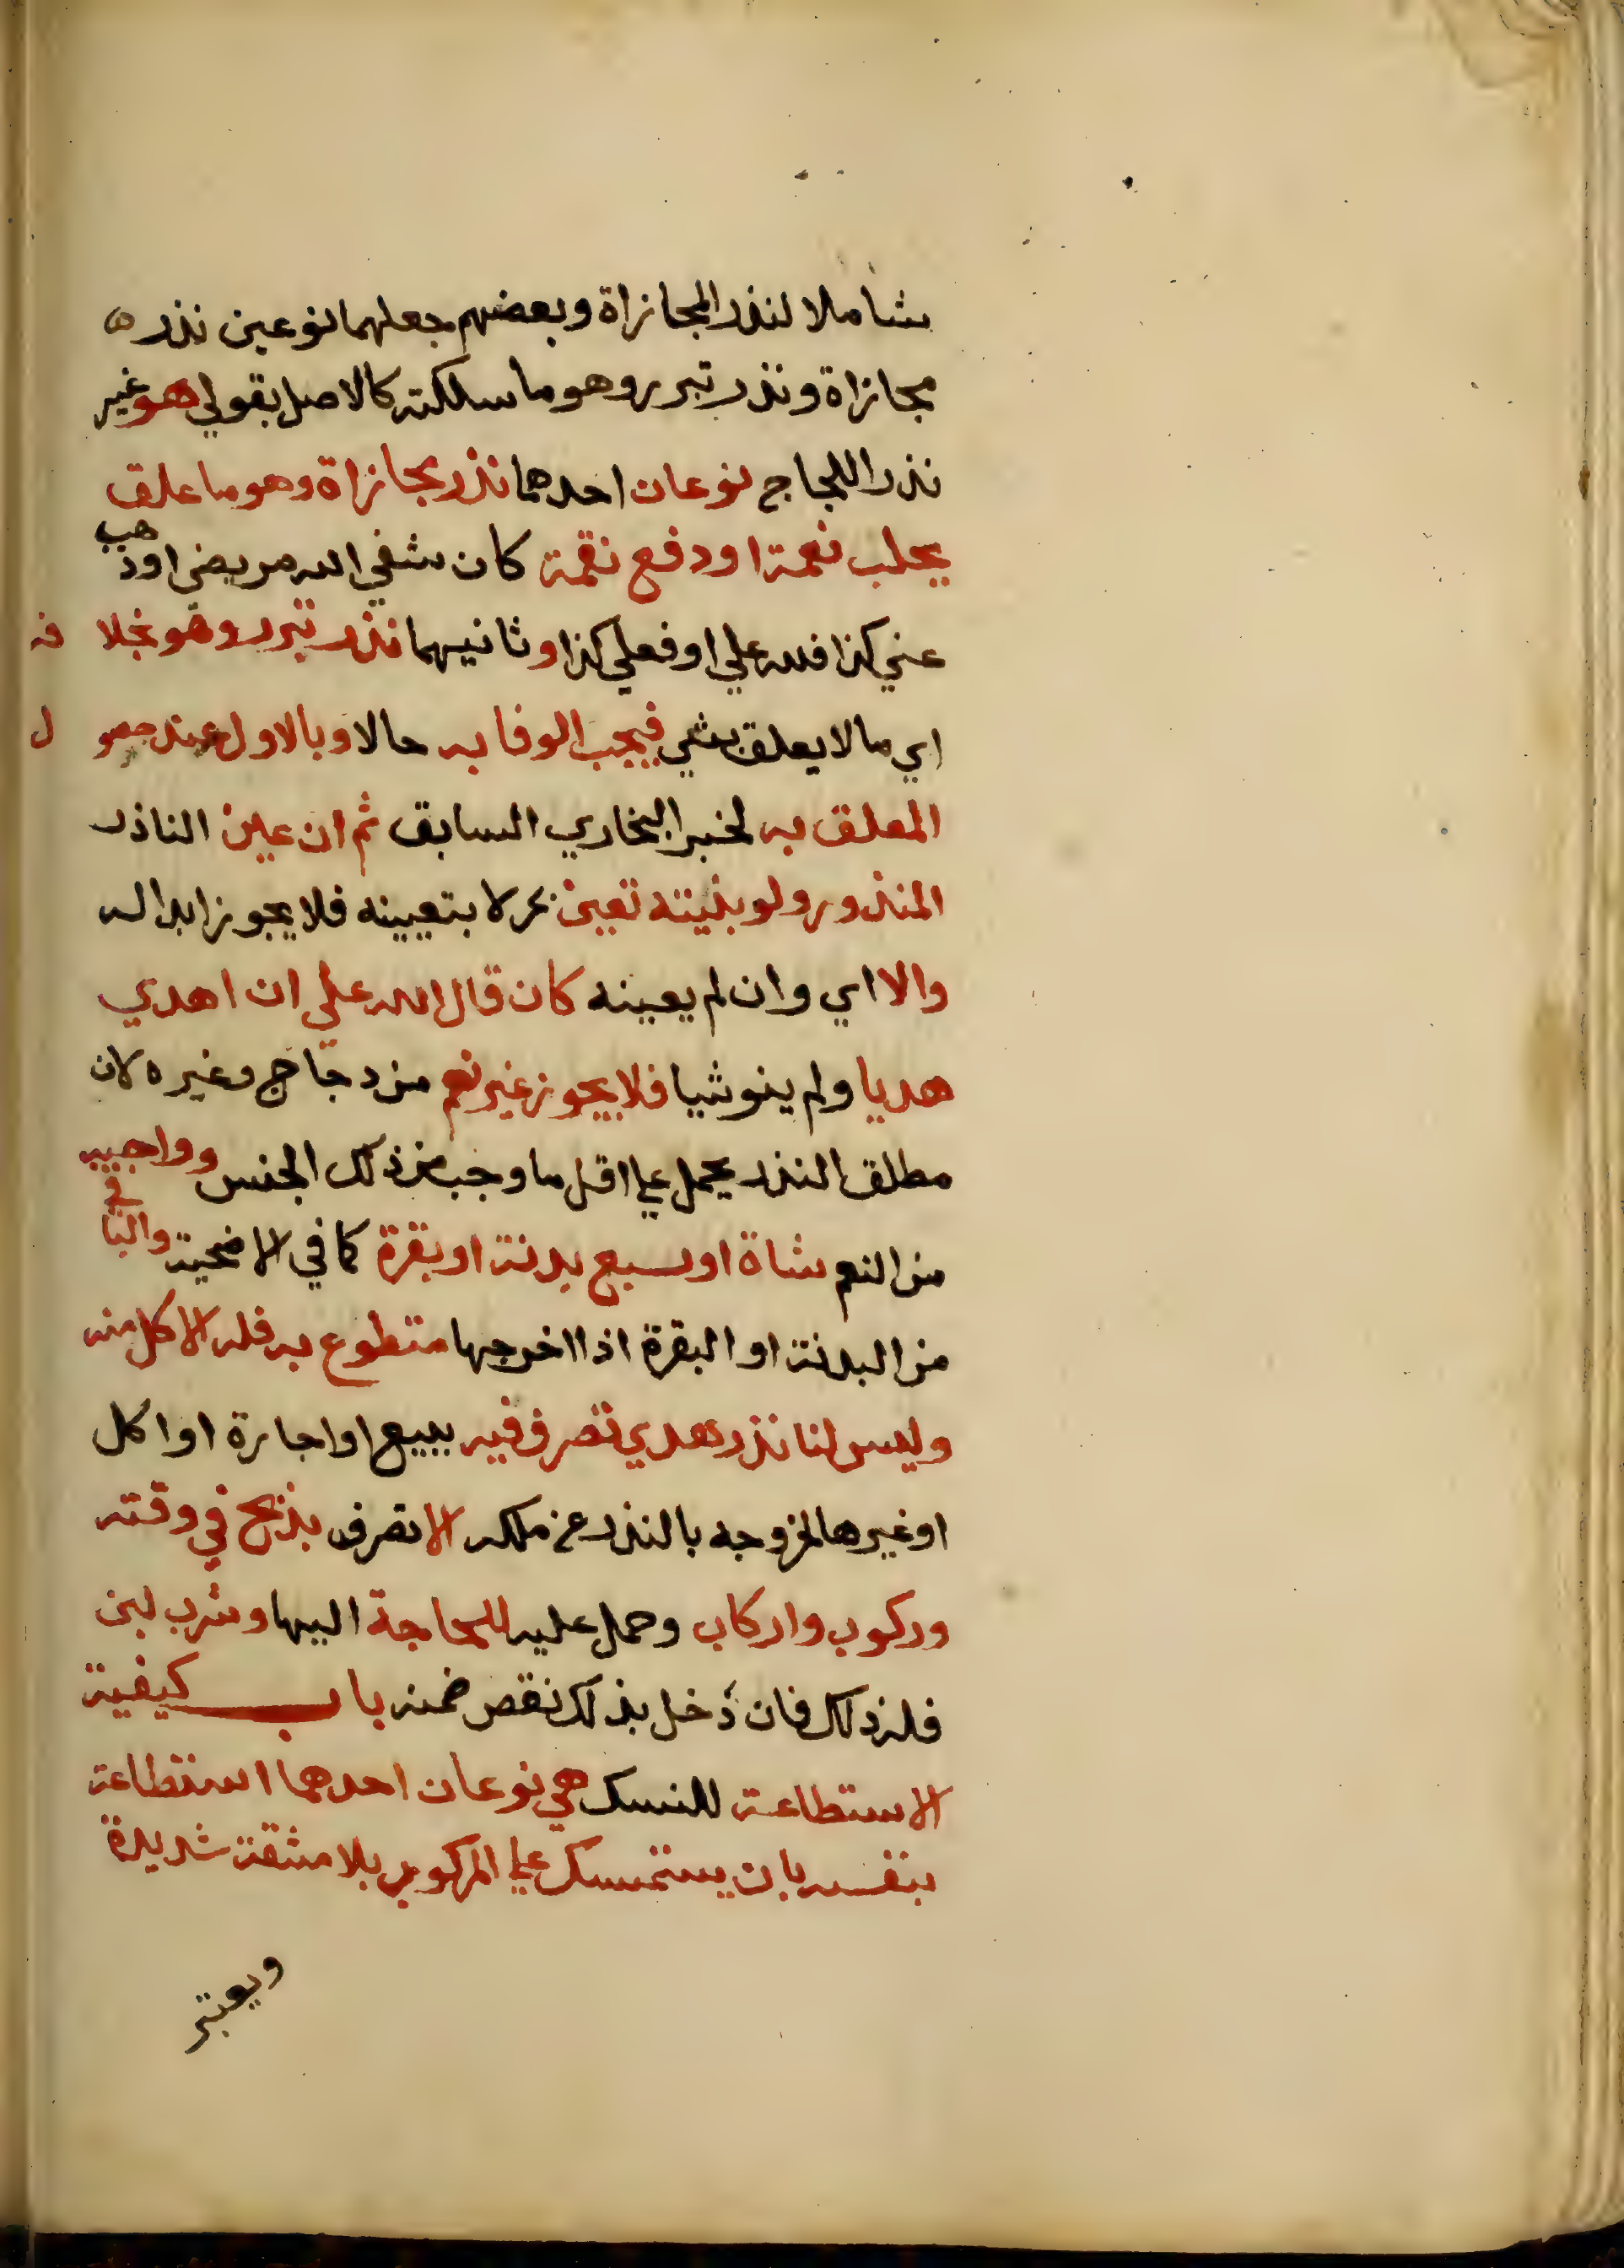 شاملا لنذر المجازاة وبعضهم جعلهما نوعين نذر ه
مجازاة ونذر تبرر وهو ما سلكته كالاصل بقولي هو غير
نذر اللجاج نوعان احدهما نذر مجازاة وهو ما علق
بجلب نعمة او دفع نقمة كان شفي الله مريضي او ذهب
عني كذا فلله علي او فعلي كذا وثانيهما نذر تبرر وهو بخلا فه
اي ما لا يعلق بشي فيجب الوفا به حالا وبالاول عند حصو ل
المعلق به لخبر البخاري السابق ثم ان عين الناذر
المنذور ولو بنيته تعين عملا بتعيينه فلا يجوز ابداله
والا اي وان لم يعينه كان قال لله علي ان اهدي
هديا ولم ينو شيا فلا يجوز غير نعم من دجاج وغيره لان
مطلق النذر يحمل علي اقل ما وجب من ذلك الجنس وواجبه
من النعم شاة او سبع بدنة او بقرة كما في الاضحية والباقي
من البدنة او البقرة اذا اخرجها متطوع به فله الاكل منه
وليس لنا نذر هدي تصرف فيه ببيع او اجارة او اكل
او غيرها لخروجه بالنذر عن ملكه الا تصرف بذبح في وقته
وركوب واركاب وحمل عليه للحاجة اليها وشرب لبن
فله ذلك فان دخل بذلك نقص ضمنه باب كيفية
الاستطاعة للنسك هي نوعان احدهما استطاعة
بنفسه بان يستمسك علي المركوب بلا مشقة شديدة
ويعتبر